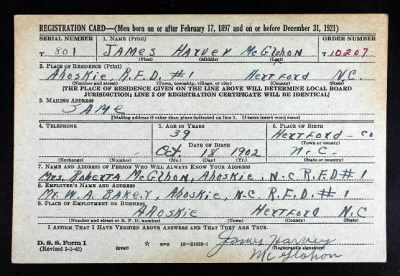 REGISTRATION CARD—(Men born on or after February 17, 1897 and on or before December 31, 1921)
SERIAL NUMBER 1. NAME (Print) ORDER NUMBER
T 801 JAMES HARVEY McGlohon 10207
(First) (Middle) (Last)
2. PLACE OF RESIDENCE (Print)
Ahoskie, R.F.D. #1 Hertford N.C
(Number and street) (Town, township, village, or city) (County) (State)
[THE PLACE OF RESIDENCE GIVEN ON THE LINE ABOVE WILL DETERMINE LOCAL BOARD
JURISDICTION; LINE 2 OF REGISTRATION CERTIFICATE WILL BE IDENTICAL]
3. MAILING ADDRESS
SAME
[Mailing address if other than place indicated on line 2. If same insert word same]
4. TELEPHONE 5. AGE IN YEARS 6. PLACE OF BIRTH
39 Hertford-Co
DATE OF BIRTH (Town or county)
Oct. 18 1902 N.C.
(Exchange) (Number) (Mo.) (Day) (Yr.) (State or country)
7. NAME AND ADDRESS OF PERSON WHO WILL ALWAYS KNOW YOUR ADDRESS
Mrs. Roberta McGlohon, Ahoskie, N.C. R.F.D #1
8. EMPLOYER'S NAME AND ADDRESS
Mr. W. A. Baker, Ahoskie, N.C. R.F.D. #1
9. PLACE OF EMPLOYMENT OR BUSINESS
Ahoskie Hertford N.C
(Number and street or R. F. D. number) (Town) (County) (State)
I AFFIRM THAT I HAVE VERIFIED ABOVE ANSWERS AND THAT THEY ARE TRUE.
D. S. S. Form 1 James Harvey
(Revised 2-2-42) (over) 16—21630-1 (Registrant's signature)
McGlohon